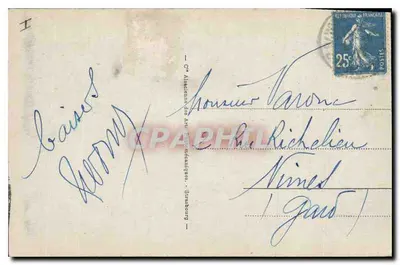 I
baisers
REPUBLIQUE FRANCAISE
25c
POSTES
Monsieur Varone
Rue Richelieu
Nimes
(Gard)
Cie Alsacienne des Arts Photomécaniques. - Strasbourg
CPAPHIL.COM